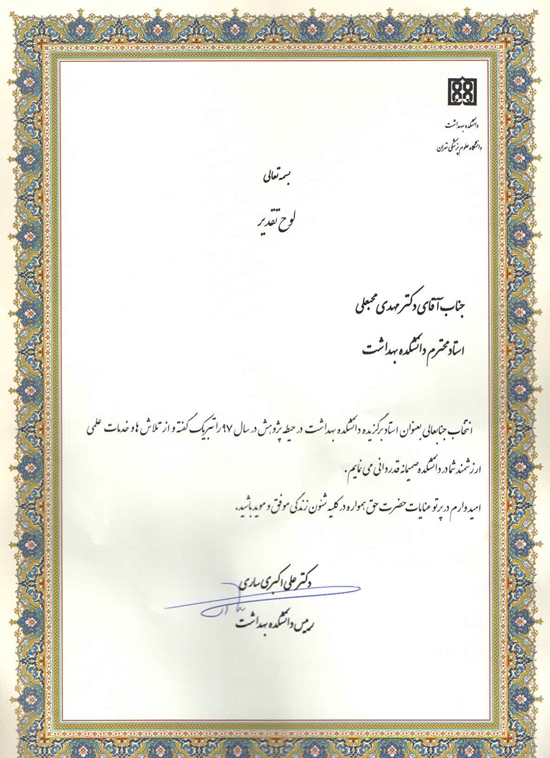 دانشکده بهداشت
دانشگاه علوم پزشکی تهران
بسمه تعالی
لوح تقدیر
جناب آقای دکتر مهدی محبعلی
استاد محترم دانشکده بهداشت
انتخاب جنابعالی بعنوان استاد برگزیده دانشکده بهداشت در حیطه پژوهش در سال ۹۷ را تبریک گفته و از تلاش ها و خدمات علمی
ارزشمند شما در دانشکده صمیمانه قدردانی می نمایم.
امیدوارم در پرتو عنایات حضرت حق همواره در کلیه شئون زندگی موفق و موید باشید.
دکتر علی اکبری ساری
رییس دانشکده بهداشت